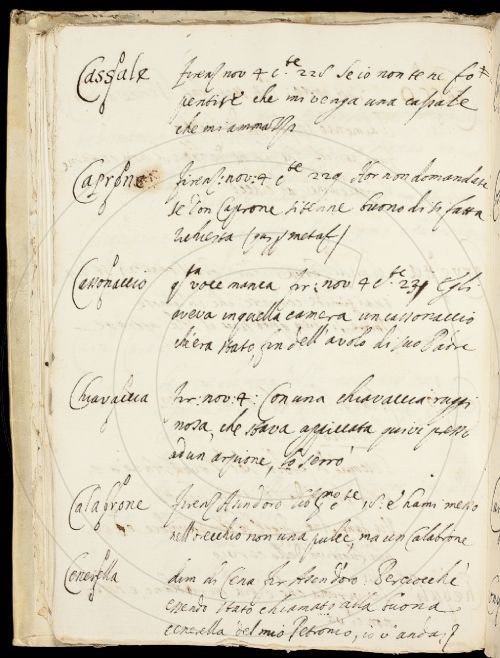 Cassale Firenz nov 4 c.te 228 Se io non te ne fo
pentire che mi venga una cassale
che mi ammazzi
Caprone Firenz: nov: 4 c.te 229 Hor non domandate
se Don Caprone tenne buono di sì fatta
richiesta
Cassonaccio q.ta voce manca fir: nov 4 c.te Egli
aveva in quella camera un cassonaccio
ch'era stato fin dell'avolo di suo Padre
Chiavaccia fir: nov: 4: Con una chiavaccia ruggi
nosa, che stava appiccata quivi presso
ad un arpione, lo serrò
Calabrone Firenz Asindoro s'è hami messo
nell'orecchio non una pulce, ma un Calabrone
Cenerella dim di Cena fir Asindoro: Perciocchè
essendo stato chiamato alla buona
cenerella del mio Petronio, io v'andai